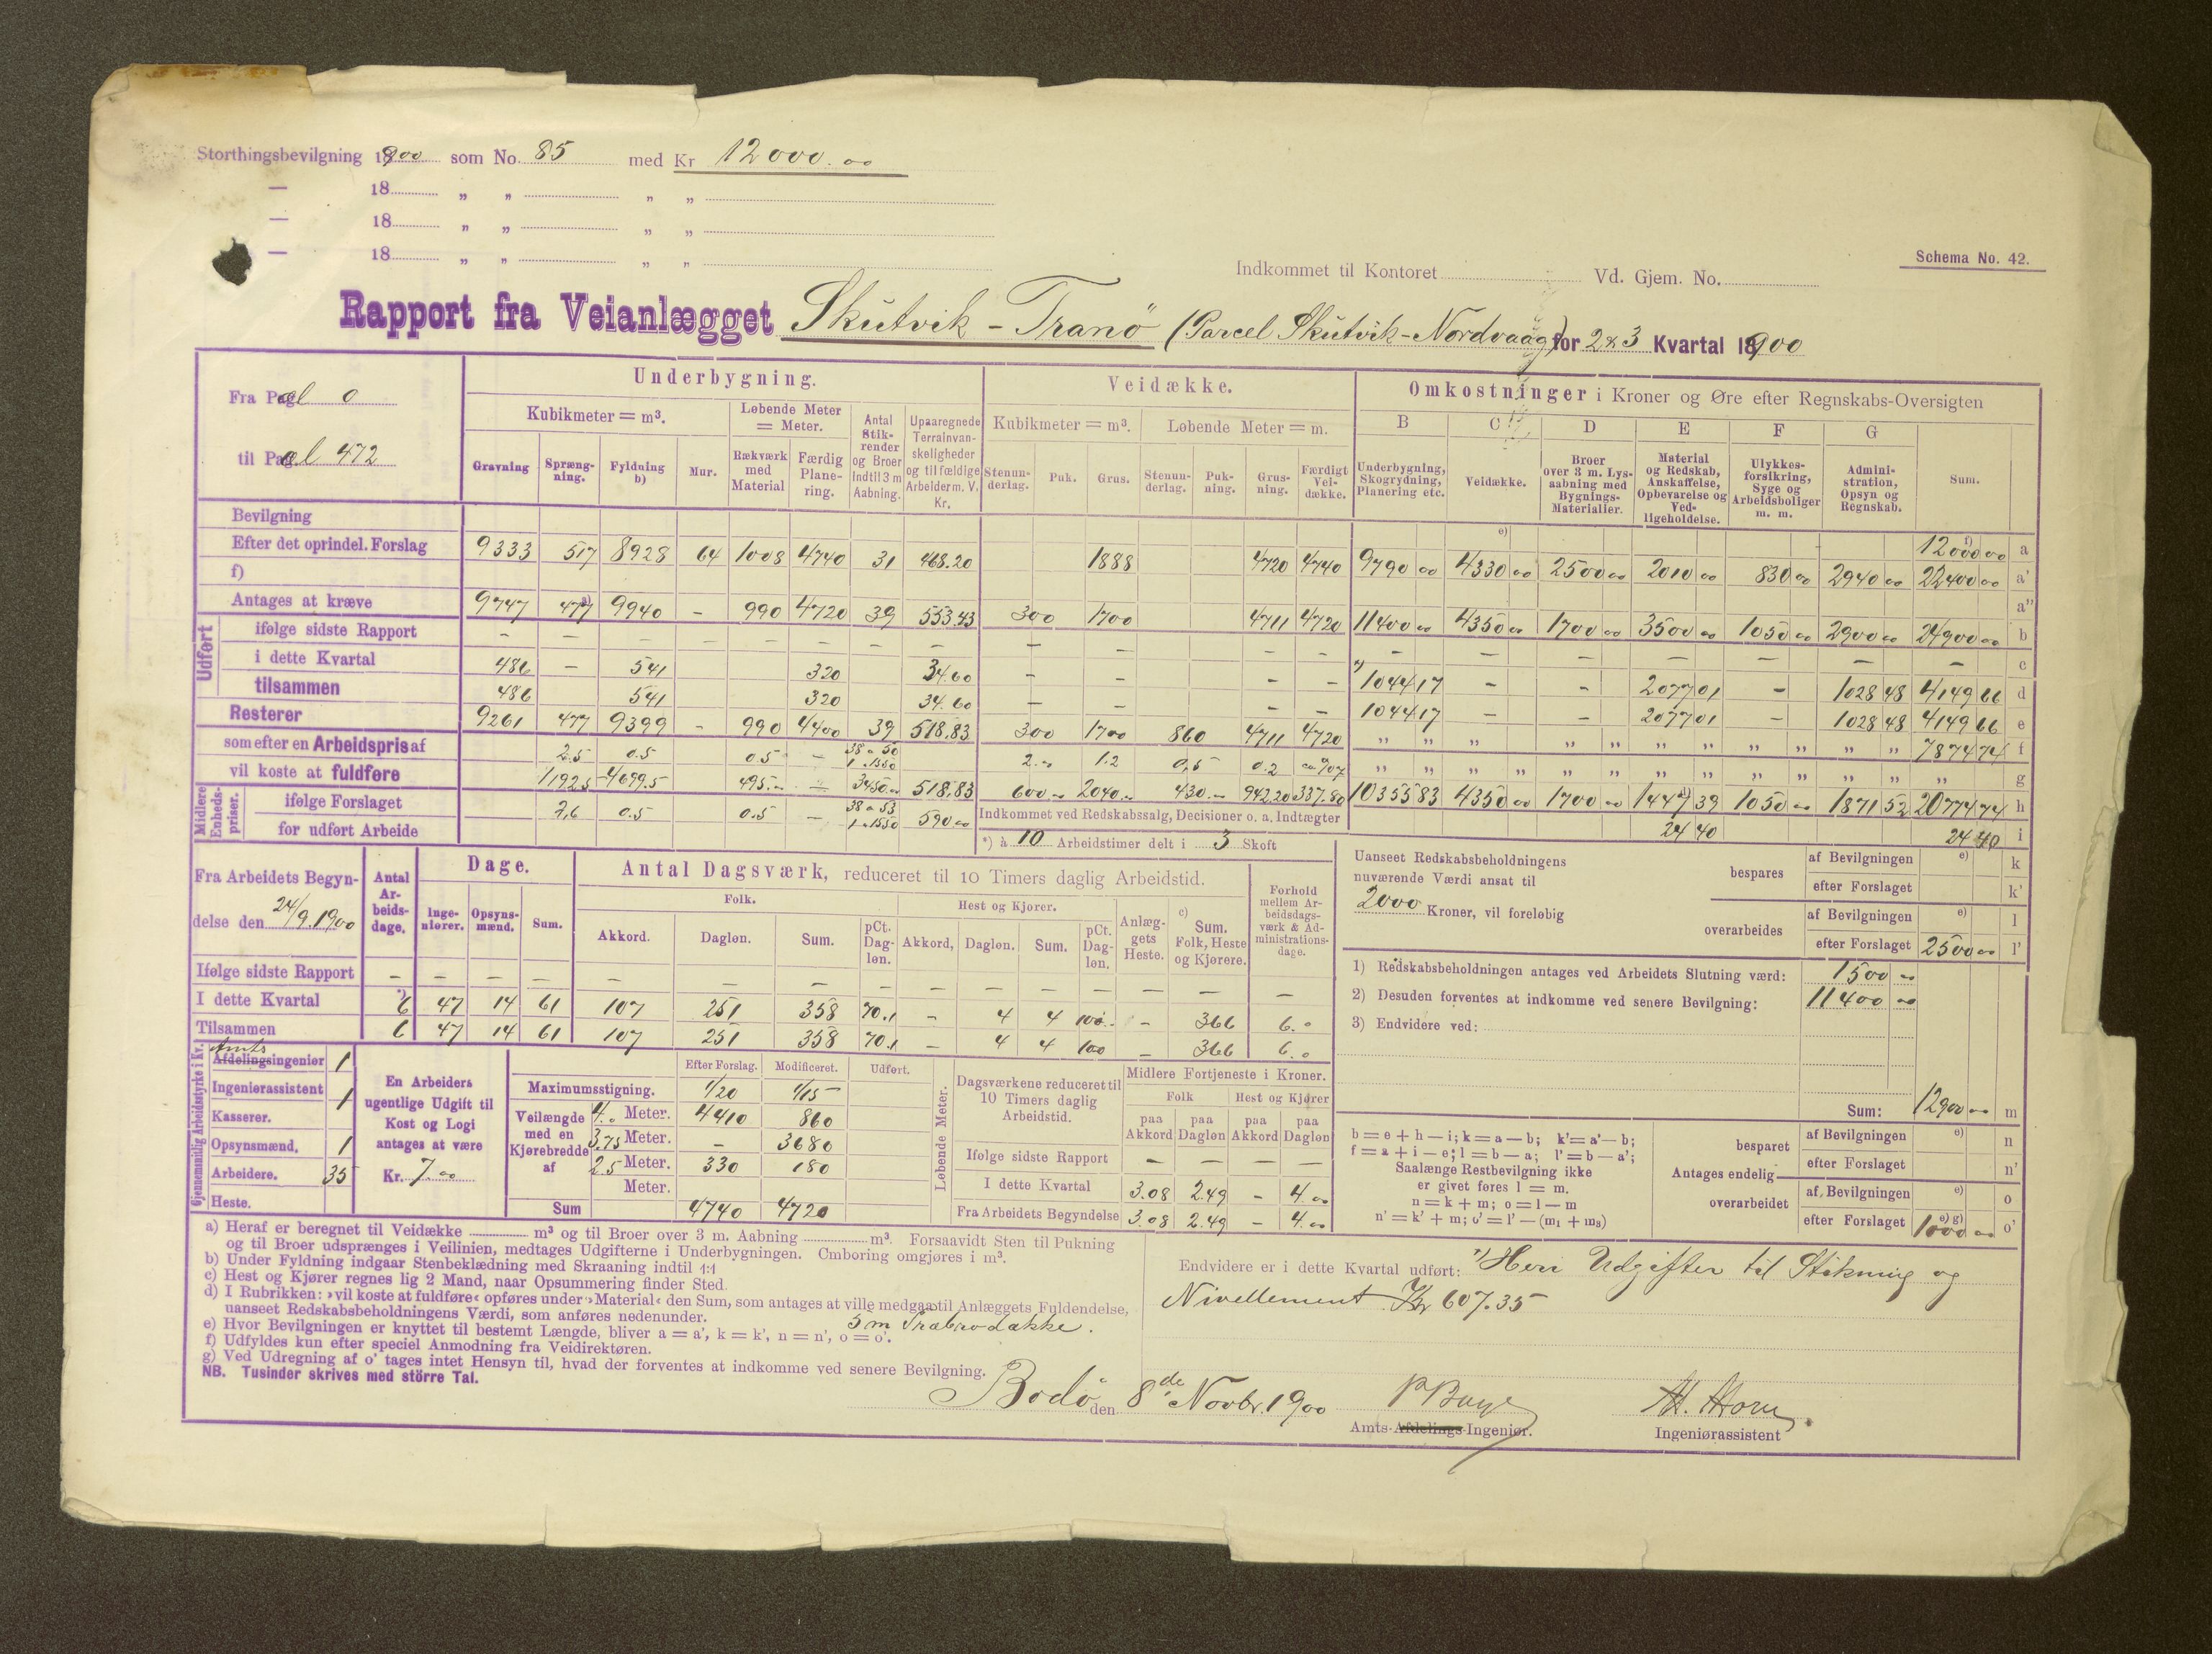 Storthingsbevilgning 1900 som No. 85 med Kr 12000.00
— 18 „ „ „ „
— 18 „ „ „ „
— 18 „ „ „ „
Schema No. 42.
Indkommet til Kontoret Vd. Gjem. No.
Rapport fra Veianlægget Skutvik - Tranö (Parcel Skutvik - Nordvaag) for 2 & 3 Kvartal 1900
Fra Pæl 0
til Pæl 472
Underbygning. Veidække. Omkostninger i Kroner og Øre efter Regnskabs-Oversigten
Kubikmeter = m³. Løbende Meter = Meter. Antal Stikrender og Broer indtil 3 m Aabning. Upaaregnede Terrainvanskeligheder og tilfældige Arbeider m. V. Kr. Kubikmeter = m³. Løbende Meter = m. B C D E F G
Gravning Sprængning. Fyldning b) Mur. Rækværk med Material Færdig Planering. Stenunderlag. Puk. Grus. Stenunderlag. Pukning. Grusning. Færdigt Veidække. Underbygning, Skogrydning, Planering etc. Veidække. Broer over 3 m. Lysaabning med Bygnings-Materialier. Material og Redskab, Anskaffelse, Opbevarelse og Vedligeholdelse. Ulykkesforsikring, Syge og Arbeidsboliger m. m. Administration, Opsyn og Regnskab. Sum.
Bevilgning e) f) 12000 00 a
Efter det oprindel. Forslag 9333 517 8928 64 1008 4740 31 468.20 1888 4720 4740 9790 00 4330 00 2500 00 2010 00 830 00 2940 00 22400 00 a'
f) a''
Antages at kræve 9747 477 a) 9940 - 990 4720 39 553.43 300 1700 4711 4720 11400 00 4350 00 1700 00 3500 00 1050 00 2900 00 24900 00 b
Udført
ifølge sidste Rapport - - - - - - - - - - - - - - - - - - - c
i dette Kvartal 486 - 541 320 34.60 - - - - *) 1044 17 - - 2077 01 - 1028 48 4149 66 d
tilsammen 486 541 320 34.60 - - - - 1044 17 - - 2077 01 - 1028 48 4149 66 e
Resterer 9261 477 9399 - 990 4400 39 518.83 300 1700 860 4711 4720 „ „ „ „ „ „ „ „ „ „ „ 7874 74 f
som efter en Arbeidspris af 2.5 0.5 0.5 - 38 a 50 1 a 1550 2.00 1.2 0,5 0.2 ca. 0.07 „ „ „ „ „ „ „ „ „ „ „ „ „ g
vil koste at fuldføre 1192.5 4699.5 495.00 - 3450.00 518.83 600.00 2040.00 430.00 942.20 337.80 10355 83 4350 00 1700 00 1447 39 1050 00 1871 52 20774 74 h
Midlere Enheds-priser.
ifølge Forslaget 2,6 0.5 0.5 - 38 a 53 1 a 1550 590.00 Indkommet ved Redskabssalg, Decisioner o. a. Indtægter 24 40 24 40 i
for udført Arbeide
*) à 10 Arbeidstimer delt i 3 Skoft
Fra Arbeidets Begyndelse den 24/9.1900
Antal Arbeidsdage.
Dage.
Ingeniører. Opsynsmænd. Sum.
Antal Dagsværk, reduceret til 10 Timers daglig Arbeidstid.
Folk. Hest og Kjører.
Akkord. Dagløn. Sum. pCt. Dagløn. Akkord, Dagløn. Sum. pCt. Dagløn. Anlæggets Heste. c) Sum. Folk, Heste og Kjørere. Forhold mellem Arbeidsdagsværk & Administrationsdage.
Ifølge sidste Rapport - - - - - - - - - - - - - - -
I dette Kvartal *) 6 47 14 61 107 251 358 70.1 - 4 4 100. - 366 6.0
Tilsammen 6 47 14 61 107 251 358 70.1 - 4 4 100 - 366 6.0
Uanseet Redskabsbeholdningens nuværende Værdi ansat til 2000 Kroner, vil foreløbig
bespares af Bevilgningen e) k
efter Forslaget k'
overarbeides af Bevilgningen e) l
efter Forslaget 2500 00 l'
1) Redskabsbeholdningen antages ved Arbeidets Slutning værd: 1500 00
2) Desuden forventes at indkomme ved senere Bevilgning: 11400 00
3) Endvidere ved:
Sum: 12900 00 m
Gjennemsnitlig Arbeidsstyrke i Kv.
Amts
Afdelingsingeniør 1
Ingeniørassistent 1
Kasserer.
Opsynsmænd, 1
Arbeidere. 35
Heste.
En Arbeiders ugentlige Udgift til Kost og Logi antages at være
Kr. 7.00
Efter Forslag. Modificeret. Udført.
Maximumsstigning. 1/20 1/15
Veilængde med en Kjørebredde af
4.0 Meter. 4410 860
3.75 Meter. - 3680
2.5 Meter. 330 180
Meter.
Sum 4740 4720
Løbende Meter.
Dagsværkene reduceret til 10 Timers daglig Arbeidstid.
Midlere Fortjeneste i Kroner.
Folk Hest og Kjører
paa Akkord paa Dagløn paa Akkord paa Dagløn
Ifølge sidste Rapport - - - -
I dette Kvartal 3.08 2.49 - 4.00
Fra Arbeidets Begyndelse 3.08 2.49 - 4.00
b = e + h — i; k = a — b; k' = a' — b;
f = a + i — e; l = b — a; l' = b — a';
Saalænge Restbevilgning ikke
er givet føres l = m.
n = k + m; o = l — m
n' = k' + m; o' = l' — (m₁ + m₃)
Antages endelig
besparet af Bevilgningen e) n
efter Forslaget n'
overarbeidet af Bevilgningen e) o
efter Forslaget e) g) 1000 00 o'
a) Heraf er beregnet til Veidække m³ og til Broer over 3 m. Aabning m³. Forsaavidt Sten til Pukning
og til Broer udsprænges i Veilinien, medtages Udgifterne i Underbygningen. Omboring omgjøres i m³.
b) Under Fyldning indgaar Stenbeklædning med Skraaning indtil 1:1
c) Hest og Kjører regnes lig 2 Mand, naar Opsummering finder Sted.
d) I Rubrikken: »vil koste at fuldføre« opføres under »Material« den Sum, som antages at ville medgaa til Anlæggets Fuldendelse,
uanseet Redskabsbeholdningens Værdi, som anføres nedenunder.
e) Hvor Bevilgningen er knyttet til bestemt Længde, bliver a = a', k = k', n = n', o = o'.
5 m Træbrodække.
f) Udfyldes kun efter speciel Anmodning fra Veidirektøren.
g) Ved Udregning af o' tages intet Hensyn til, hvad der forventes at indkomme ved senere Bevilgning.
NB. Tusinder skrives med större Tal.
Endvidere er i dette Kvartal udført: *) Heri Udgifter til Stikning og
Nivellement Kr 607.35
Bodö den 8de Novbr. 1900
Amts-Afdelings-Ingeniør.
Ingeniørassistent